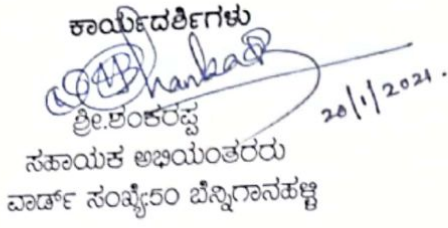 ಕಾರ್ಯದರ್ಶಿಗಳು
20/1/2021.
ಶ್ರೀ.ಶಂಕರಪ್ಪ
ಸಹಾಯಕ ಅಭಿಯಂತರರು
ವಾರ್ಡ್ ಸಂಖ್ಯೆ:50 ಬೆನ್ನಿಗಾನಹಳ್ಳಿ